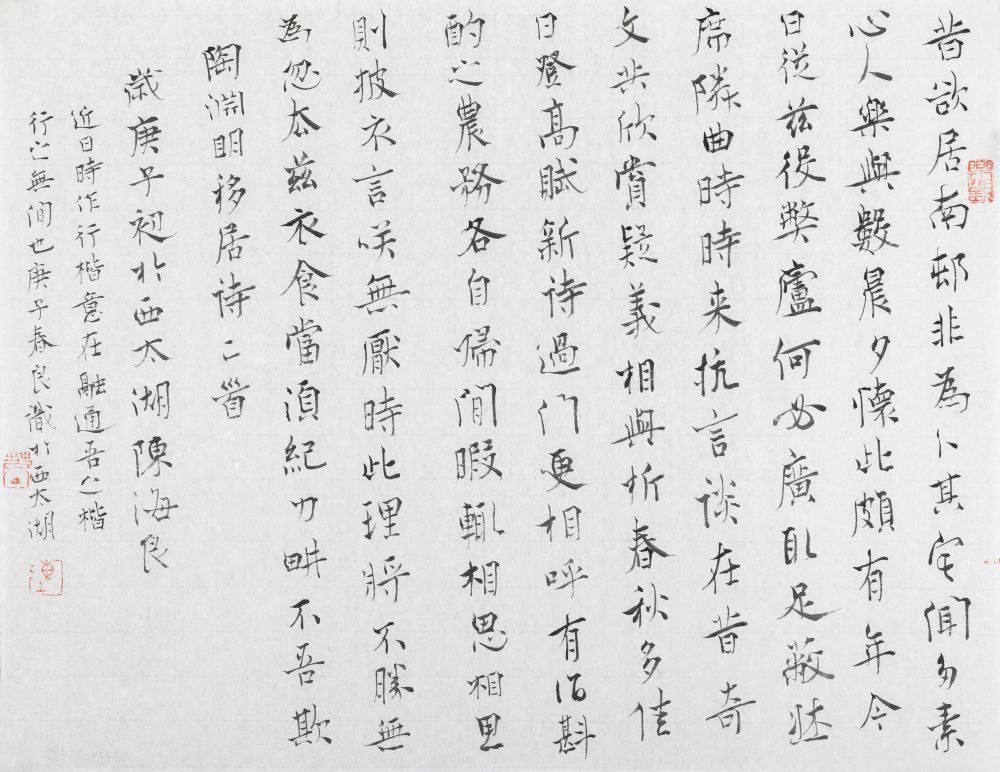 昔欲居南邨非為卜其宅聞多素
心人樂與數晨夕懷此頗有年今
日從茲役弊廬何必廣取足蔽牀
席隣曲時時来抗言談在昔奇
文共欣賞疑義相與析春秋多佳
日登高賦新詩過門更相呼有酒斟
酌之農務各自歸閒暇輒相思相思
則披衣言咲無厭時此理將不勝無
為忽去茲衣食當須紀力畊不吾欺
陶淵明移居詩二首
歲庚子初於西太湖陳海良
近日時作行楷意在融通吾以楷
行之無間也庚子春良識於西太湖